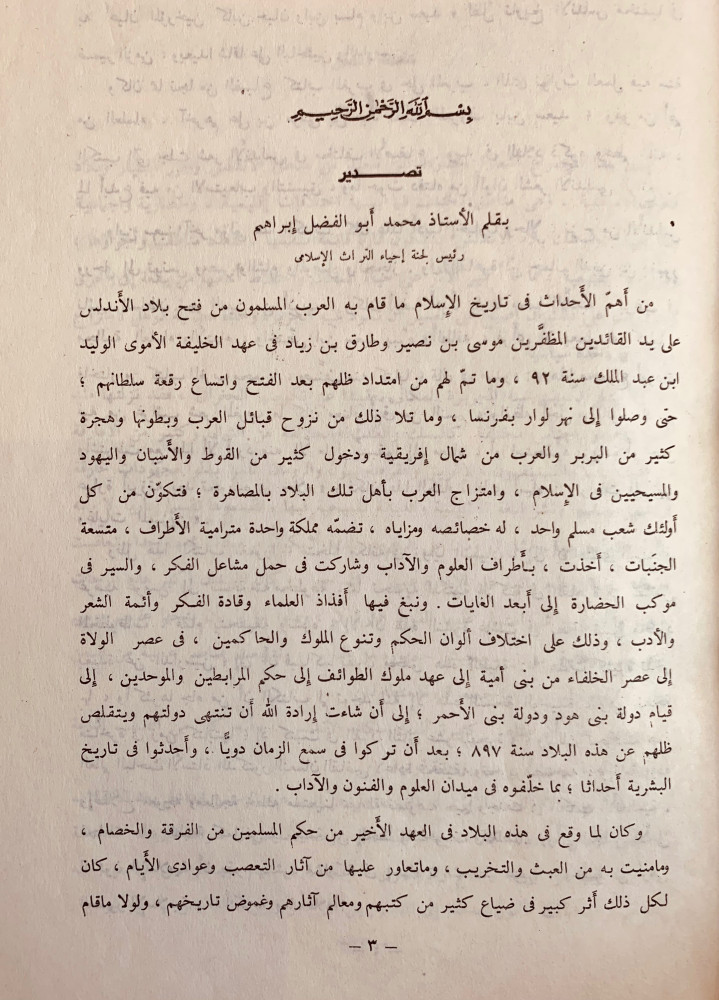 بِسْمِ اللَّهِ الرَّحْمٰنِ الرَّحِيمِ
تصدير
بقلم الأستاذ محمد أبو الفضل إبراهيم
رئيس لجنة إحياء التراث الإسلامى
من أهمّ الأحداث فى تاريخ الإسلام ما قام به العرب المسلمون من فتح بلاد الأندلس
على يد القائدين المظفَّرين موسى بن نصير وطارق بن زياد فى عهد الخليفة الأموى الوليد
ابن عبد الملك سنة ٩٢ ، وما تمّ لهم من امتداد ظلهم بعد الفتح واتساع رقعة سلطانهم ؛
حتى وصلوا إلى نهر لوار بفرنسا ، وما تلا ذلك من نزوح قبائل العرب وبطونها وهجرة
كثير من البربر والعرب من شمال إفريقية ودخول كثير من القوط والأسبان واليهود
والمسيحيين فى الإسلام ، وامتزاج العرب بأهل تلك البلاد بالمصاهرة ؛ فتكوّن من كل
أولئك شعب مسلم واحد ، له خصائصه ومزاياه ، تضمّه مملكة واحدة مترامية الأطراف ، متسعة
الجنَبات ، أخذت ، بأطراف العلوم والآداب وشاركت فى حمل مشاعل الفكر ، والسير فى
موكب الحضارة إلى أبعد الغايات . ونبغ فيها أفذاذ العلماء وقادة الفكر وأئمة الشعر
والأدب ، وذلك على اختلاف ألوان الحكم وتنوع الملوك والحاكمين ، فى عصر الولاة
إلى عصر الخلفاء من بنى أمية إلى عهد ملوك الطوائف إلى حكم المرابطين والموحدين ، إلى
قيام دولة بنى هود ودولة بنى الأحمر ؛ إلى أن شاءت إرادة الله أن تنتهى دولتهم ويتقلص
ظلهم عن هذه البلاد سنة ٨٩٧ ؛ بعد أن تركوا فى سمع الزمان دويًّا ، وأحدثوا فى تاريخ
البشرية أحداثا ؛ بما خلّفوه فى ميدان العلوم والفنون والآداب .
وكان لما وقع فى هذه البلاد فى العهد الأخير من حكم المسلمين من الفرقة والخصام ،
ومامنيت به من العبث والتخريب ، وماتعاور عليها من آثار التعصب وعوادى الأيام ، كان
لكل ذلك أثر كبير فى ضياع كثير من كتبهم ومعالم آثارهم وغموض تاريخهم ، ولولا ماقام
– ٣ –